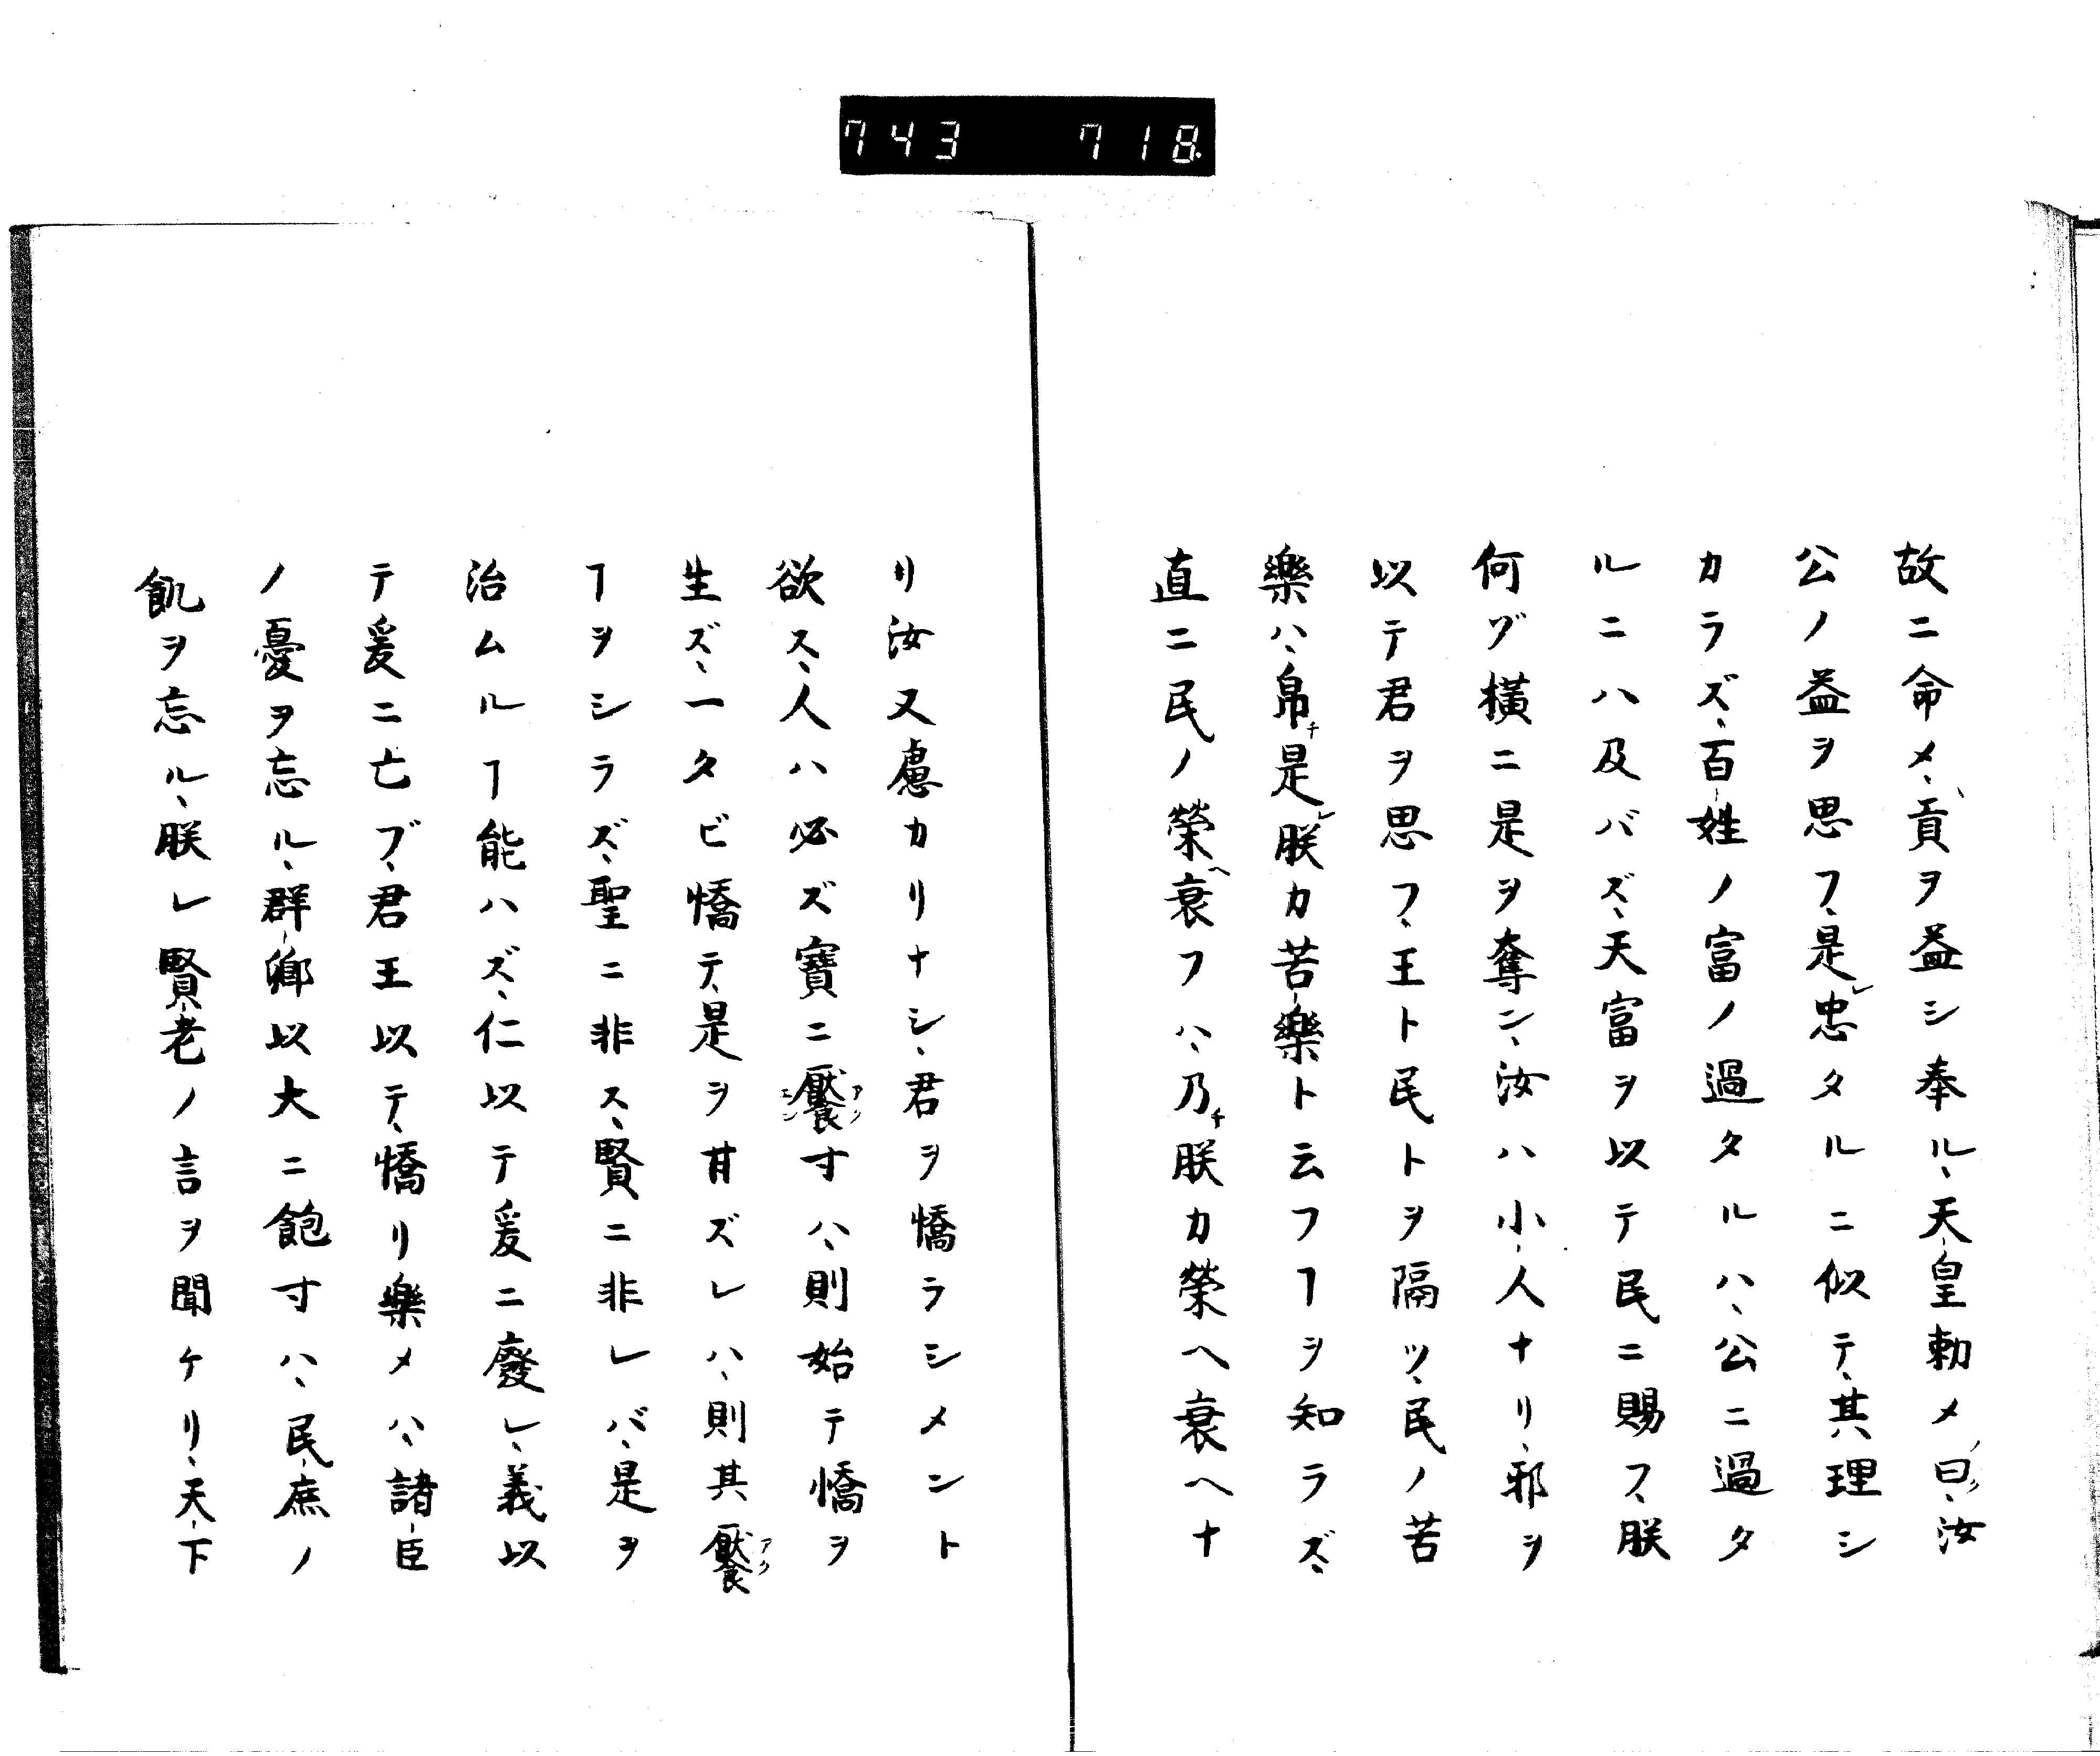 743 718
故ニ命メ、貢ヲ益シ奉ル、天皇勅メ曰、汝
公ノ益ヲ思フ、是レ忠タルニ似テ、其理シ
カラズ、百姓ノ富ノ過タルハ、公ニ過タ
ルニハ及バズ、天富ヲ以テ民ニ賜フ、朕
何ヅ横ニ是ヲ奪ン、汝ハ小人ナリ、邪ヲ
以テ君ヲ思フ、王ト民トヲ隔ツ、民ノ苦
樂ハ、帛チ是レ朕カ苦樂ト云フヿヲ知ラズ、
直ニ民ノ榮ヘ衰フハ、乃チ朕カ榮ヘ衰ヘナ
リ汝又慮カリナシ、君ヲ憍ラシメント
欲ス、人ハ必ズ寶ニ饜寸ハ、則始テ憍ヲ
生ズ、一タビ憍テ、是ヲ甘ズレハ、則其饜
ヿヲシラズ、聖ニ非ス、賢ニ非レバ、是ヲ
治ムルヿ能ハズ、仁以テ爰ニ廢レ、義以
テ爰ニ亡ブ、君王以テ、憍リ樂メハ、諸臣
ノ憂ヲ忘ル、群卿以大ニ飽寸ハ、民庶ノ
飢ヲ忘ル、朕レ賢老ノ言ヲ聞ケリ、天下